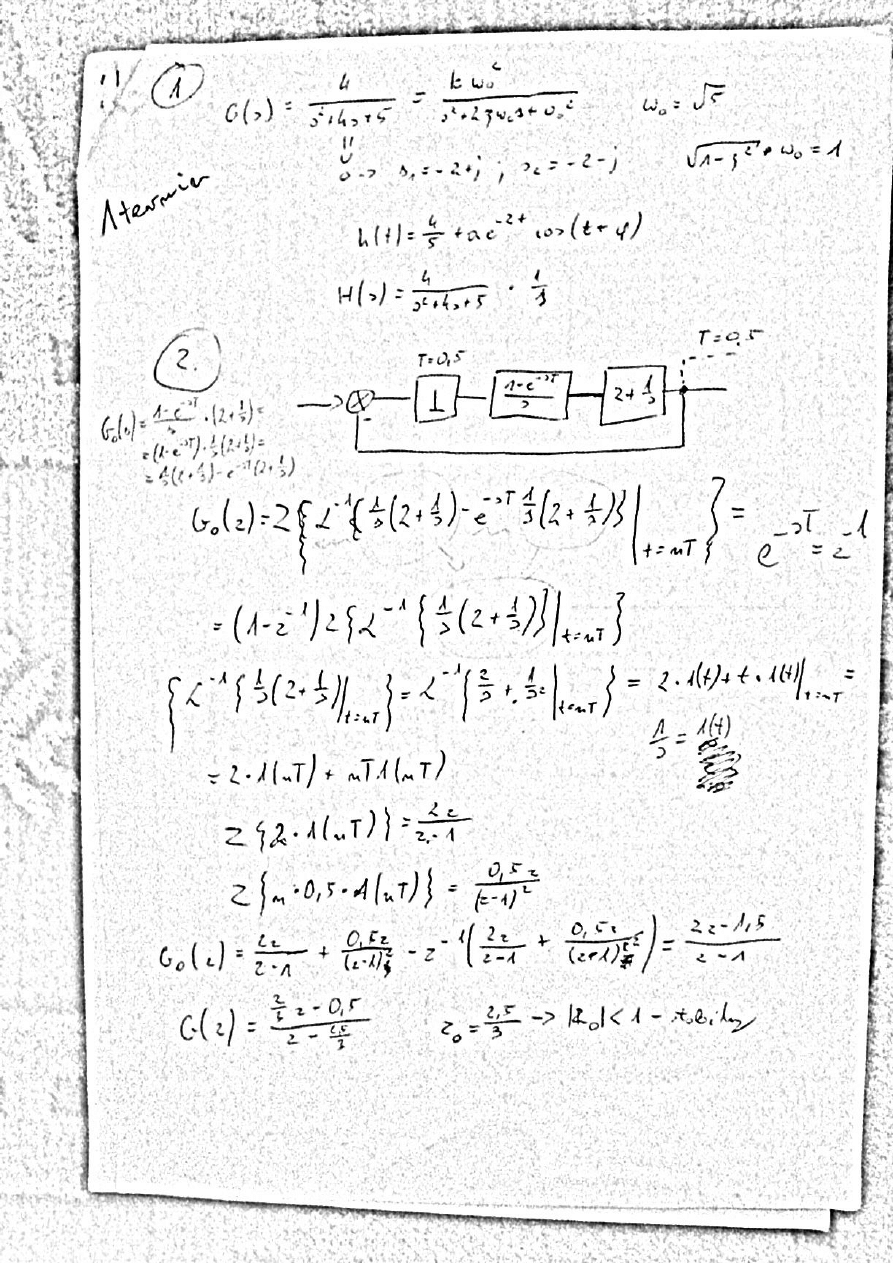 1
G(s) = 4/(s²+4s+5) = kω₀²/(s²+2ζω₀s+ω₀²)   ω₀ = √5
s₁ = -2+j ; s₂ = -2-j   √(1-ζ²) · ω₀ = 1
1 termin
h(t) = 4/5 + ae^(-2t) cos(t+φ)
H(s) = 4/(s²+4s+5) · 1/s
2.
T=0,5
T=0,5
(1-e^(-sT))/s
2+1/s
G₀(s) = (1-e^(-sT))/s · (2+1/s) =
= (1-e^(-sT)) · 1/s (2+1/s) =
= 1/s (2+1/s) - e^(-sT) (2+1/s)
G₀(z) = Z{ℒ⁻¹{1/s (2+1/s) - e^(-sT) 1/s (2+1/s)}|t=nT} =   e^(-sT) = z⁻¹
= (1-z⁻¹) Z{ℒ⁻¹{1/s (2+1/s)}|t=nT}
{ℒ⁻¹{1/s (2+1/s)|t=nT} = ℒ⁻¹{2/s + 1/s²|t=nT} = 2·1(t) + t·1(t)|t=nT =
1/s = 1(t)
= 2·1(nT) + nT1(nT)
Z{2·1(nT)} = 2z/(z-1)
Z{n·0,5·1(nT)} = 0,5z/(z-1)²
G₀(z) = 2z/(z-1) + 0,5z/(z-1)² - z⁻¹(2z/(z-1) + 0,5z/(z-1)²) = (2z-1,5)/(z-1)
G(z) = (2/3 z - 0,5)/(z - 2,5/3)   z₀ = 2,5/3 -> |z₀| < 1 - stabilny